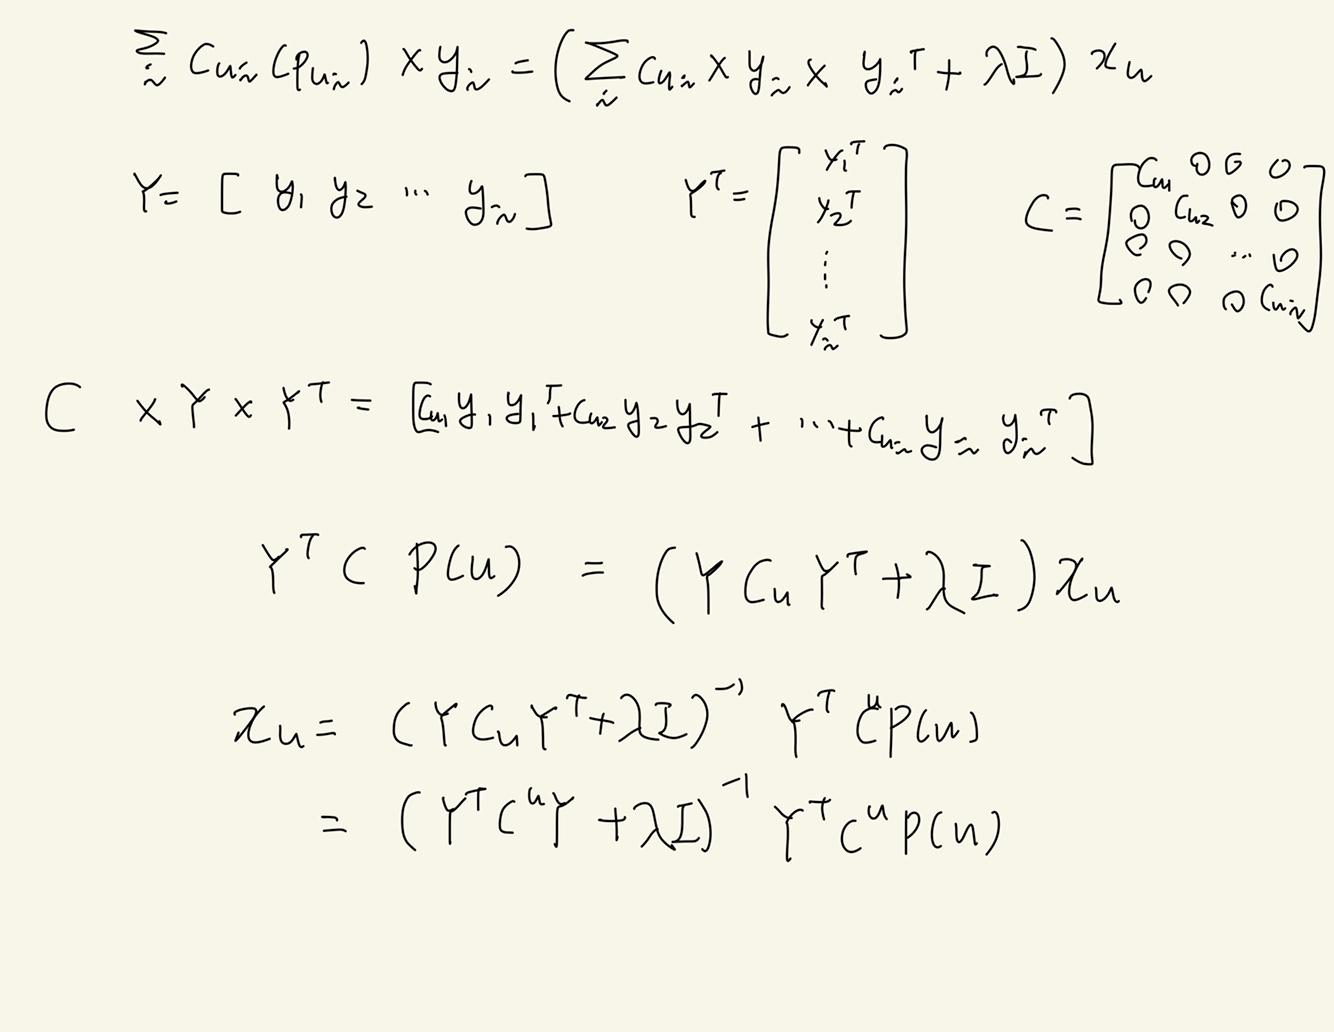 ∑_i C_ui (p_ui) × y_i = (∑_i C_ui × y_i × y_i^T + λI) x_u
Y = [ y_1 y_2 ... y_i ] Y^T = [ y_1^T y_2^T ⋮ y_i^T ] C = [ C_u1 0 0 0 ; 0 C_u2 0 0 ; 0 0 ... 0 ; 0 0 0 C_ui ]
C × Y × Y^T = [C_u1 y_1 y_1^T + C_u2 y_2 y_2^T + ... + C_ui y_i y_i^T]
Y^T C P(u) = (Y C_u Y^T + λI) x_u
x_u = (Y C_u Y^T + λI)^-1 Y^T C^u P(u)
= (Y^T C^u Y + λI)^-1 Y^T C^u P(u)